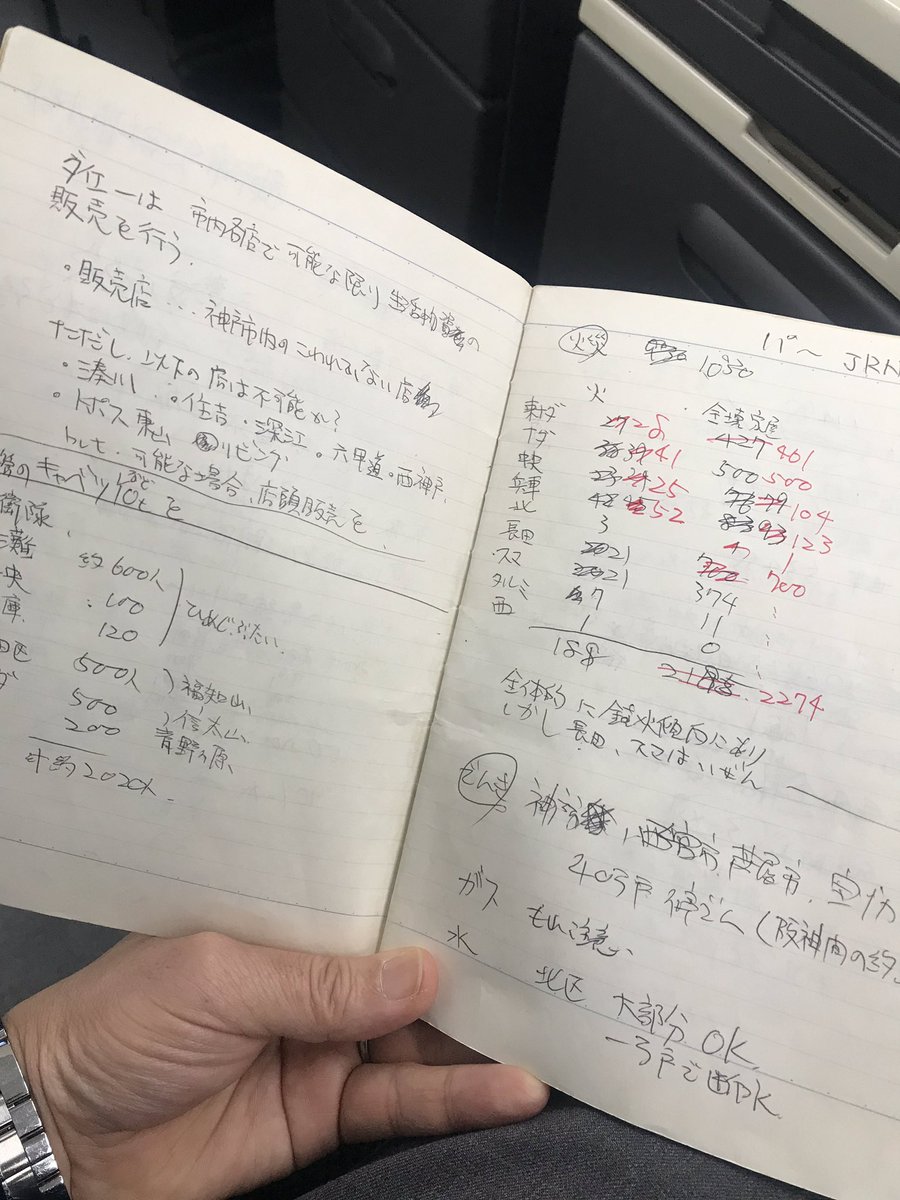 ダイエーは 市内各店で可能な限り生活物資の
販売を行う.
・販売店 … 神戸市内のこわれていない店
ただし、以下の店は不可能か?
・湊川 ・住吉・深江・六甲道・西神戸
・トポス東山 リビング
可能な場合、店頭販売を
のキャベツ10tなどを
衛隊
灘 約600人
央 100
庫 120
ひめじぶたい
田区 500人 )福知山
ダ 500 )信太山、
200 青野ヶ原、
計約2020人
バ〜 JRN
火災 1030
火 全壊家屋
東ナダ 28 427 461
ナダ 41 500 500
中央 25 104
兵庫 52 123
北 3 1
長田 21 700
・スマ 21 374
タルミ 7 11
西 1 0
188 2274
全体的に鎮火傾向にあり
しかし長田、スマはいぜん
でんき 西宮市、芦屋市、宝
40万戸 停でん(阪神間の約
ガス
水 北区 大部分OK
一万戸で